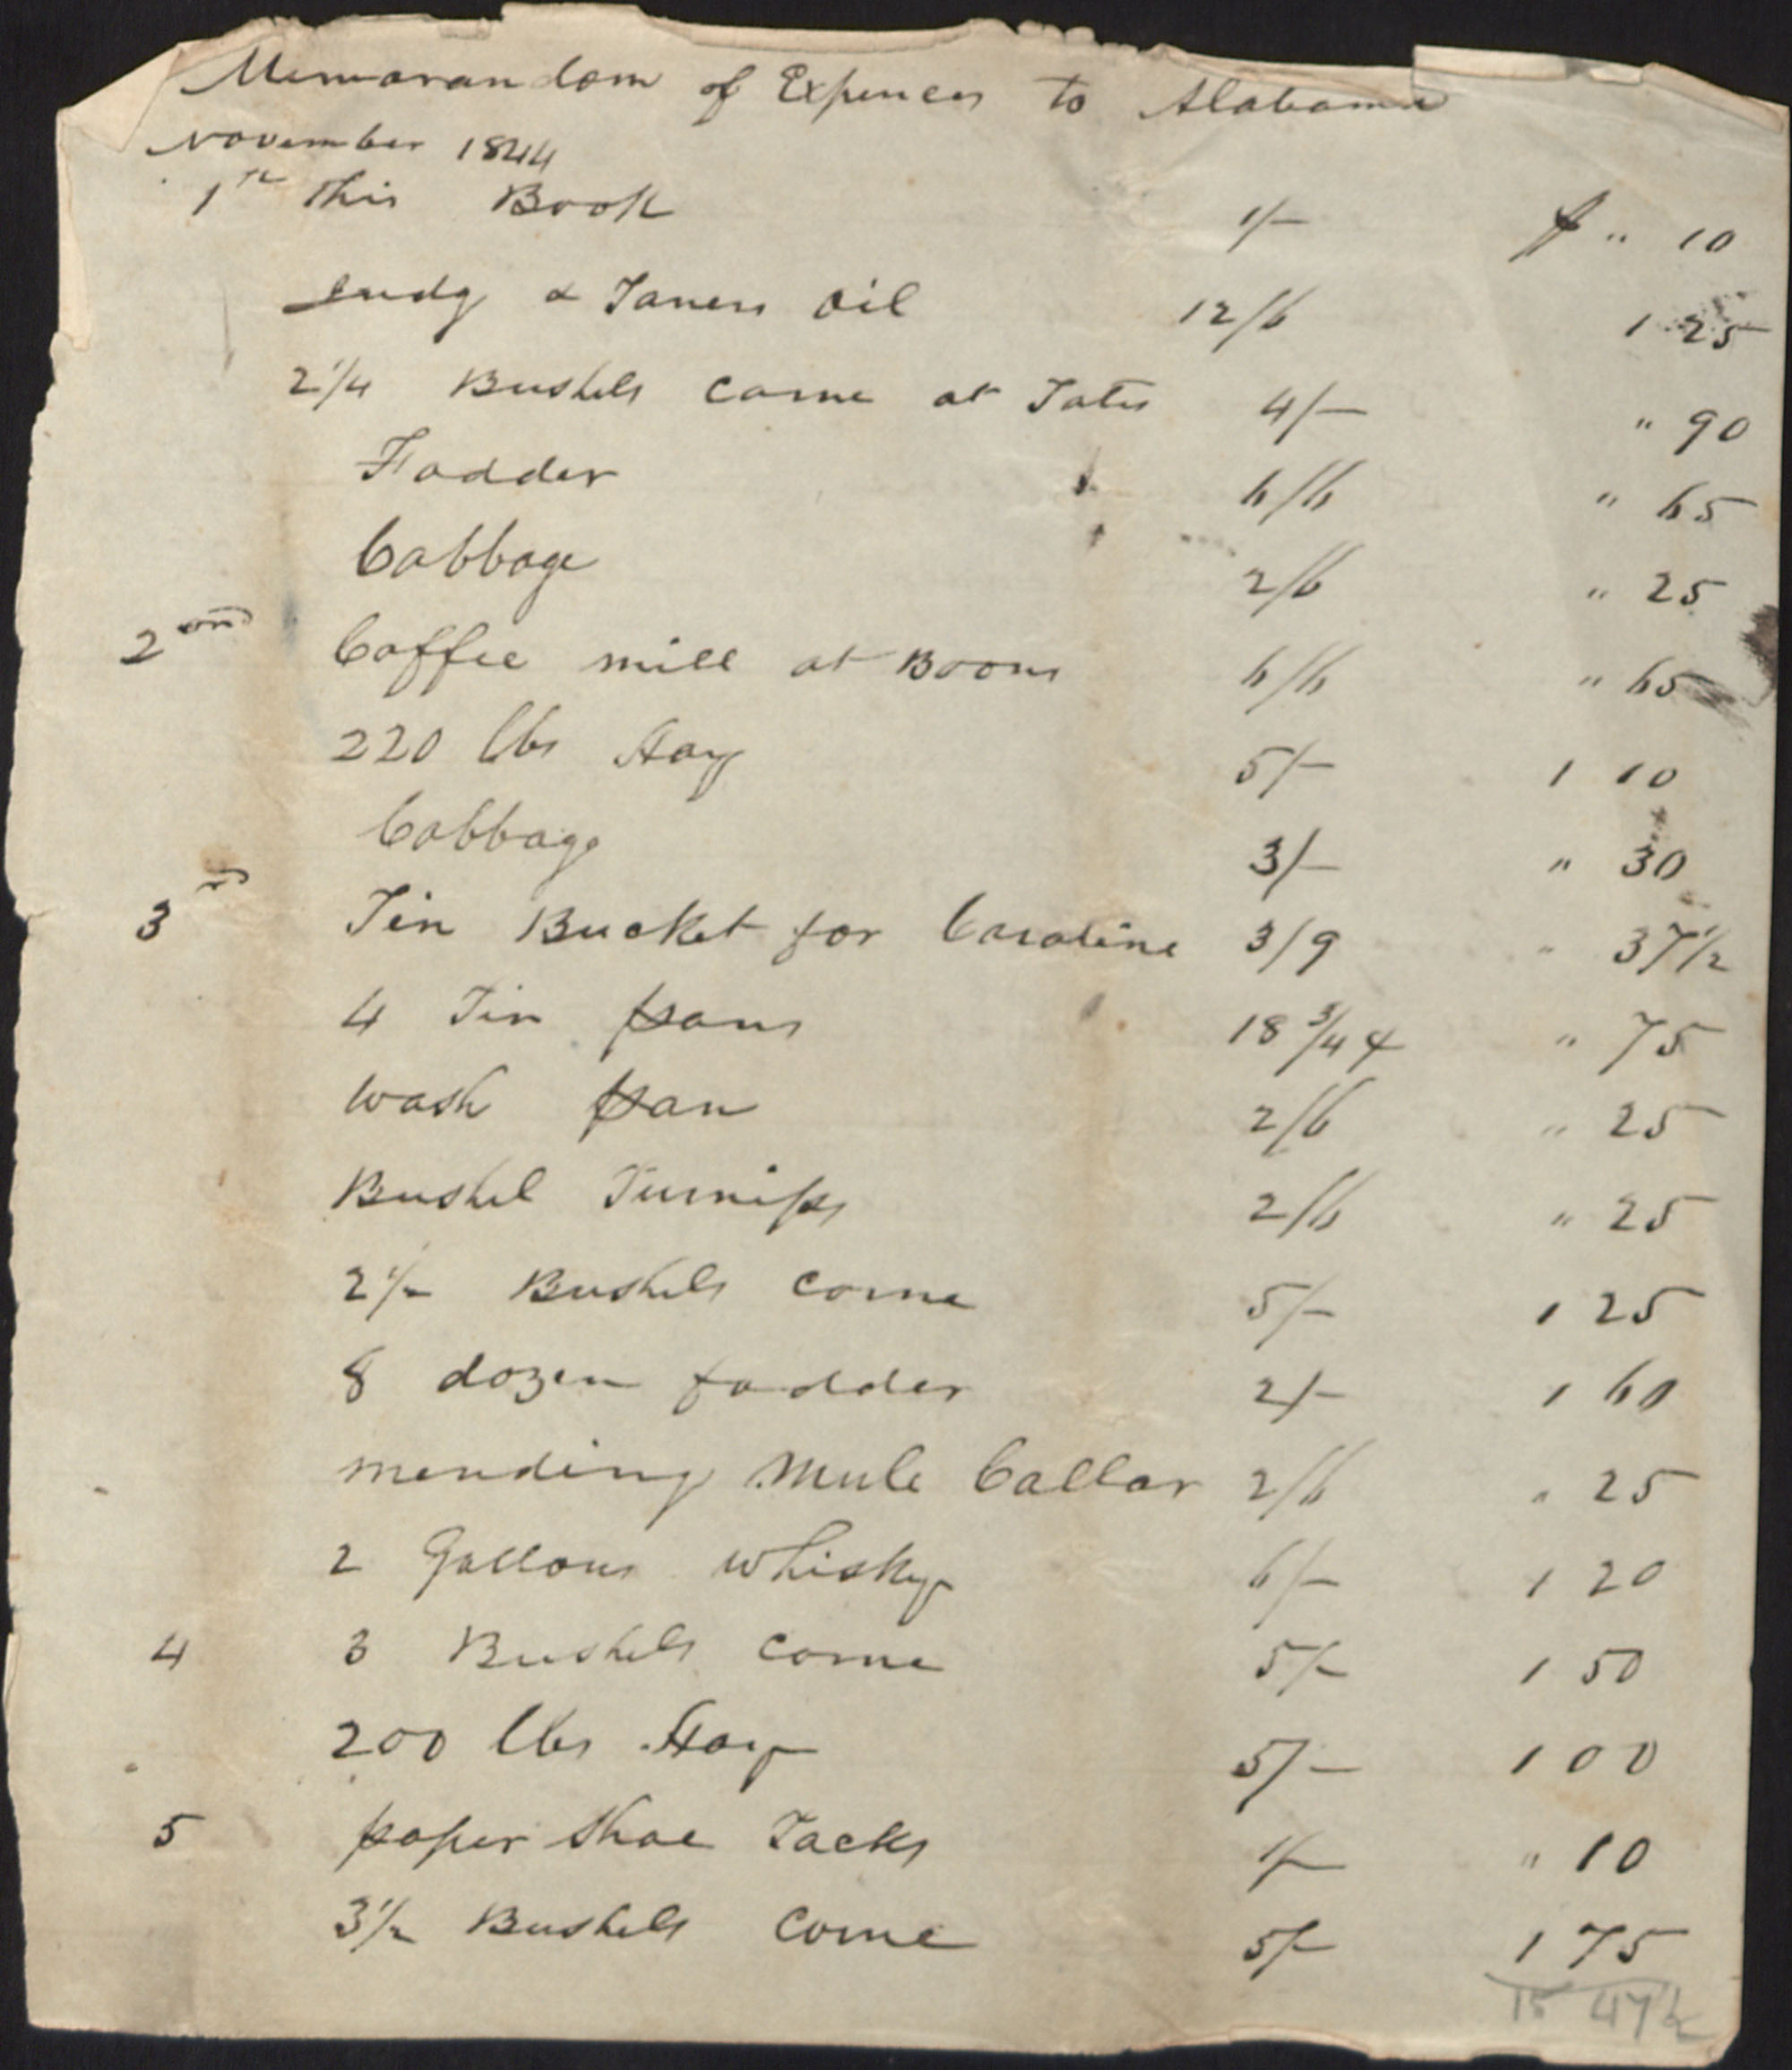 Memorandom of Expences to Alabama
November 1844
1st This Book 1/- $ " 10
& Taners Oil 12/6 1 25
2 1/4 Bushels corne at Tates 4/- " 90
Fodder 6/6 " 65
Cabbage 2/6 " 25
2ond Coffee mill at Boons 6/6 " 65
220 lbs Hay 5/- 1 10
Cabbage 3/- " 30
3rd Tin Bucket for Caroline 3/9 " 37 1/2
4 Tin pans 18 3/4 ¢ " 75
wash pan 2/6 " 25
Bushel Turnips 2/6 " 25
2 1/2 Bushels corne 5/- 1 25
8 dozen fodder 2/- 1 60
mending Mule Collar 2/6 " 25
2 Gallons whisky 6/- 1 20
4 3 Bushels corne 5/- 1 50
200 lbs Hay 5/- 1 00
5 paper Shoe Tacks 1/- " 10
3 1/2 Bushels corne 5/- 1 75
15 47 1/2